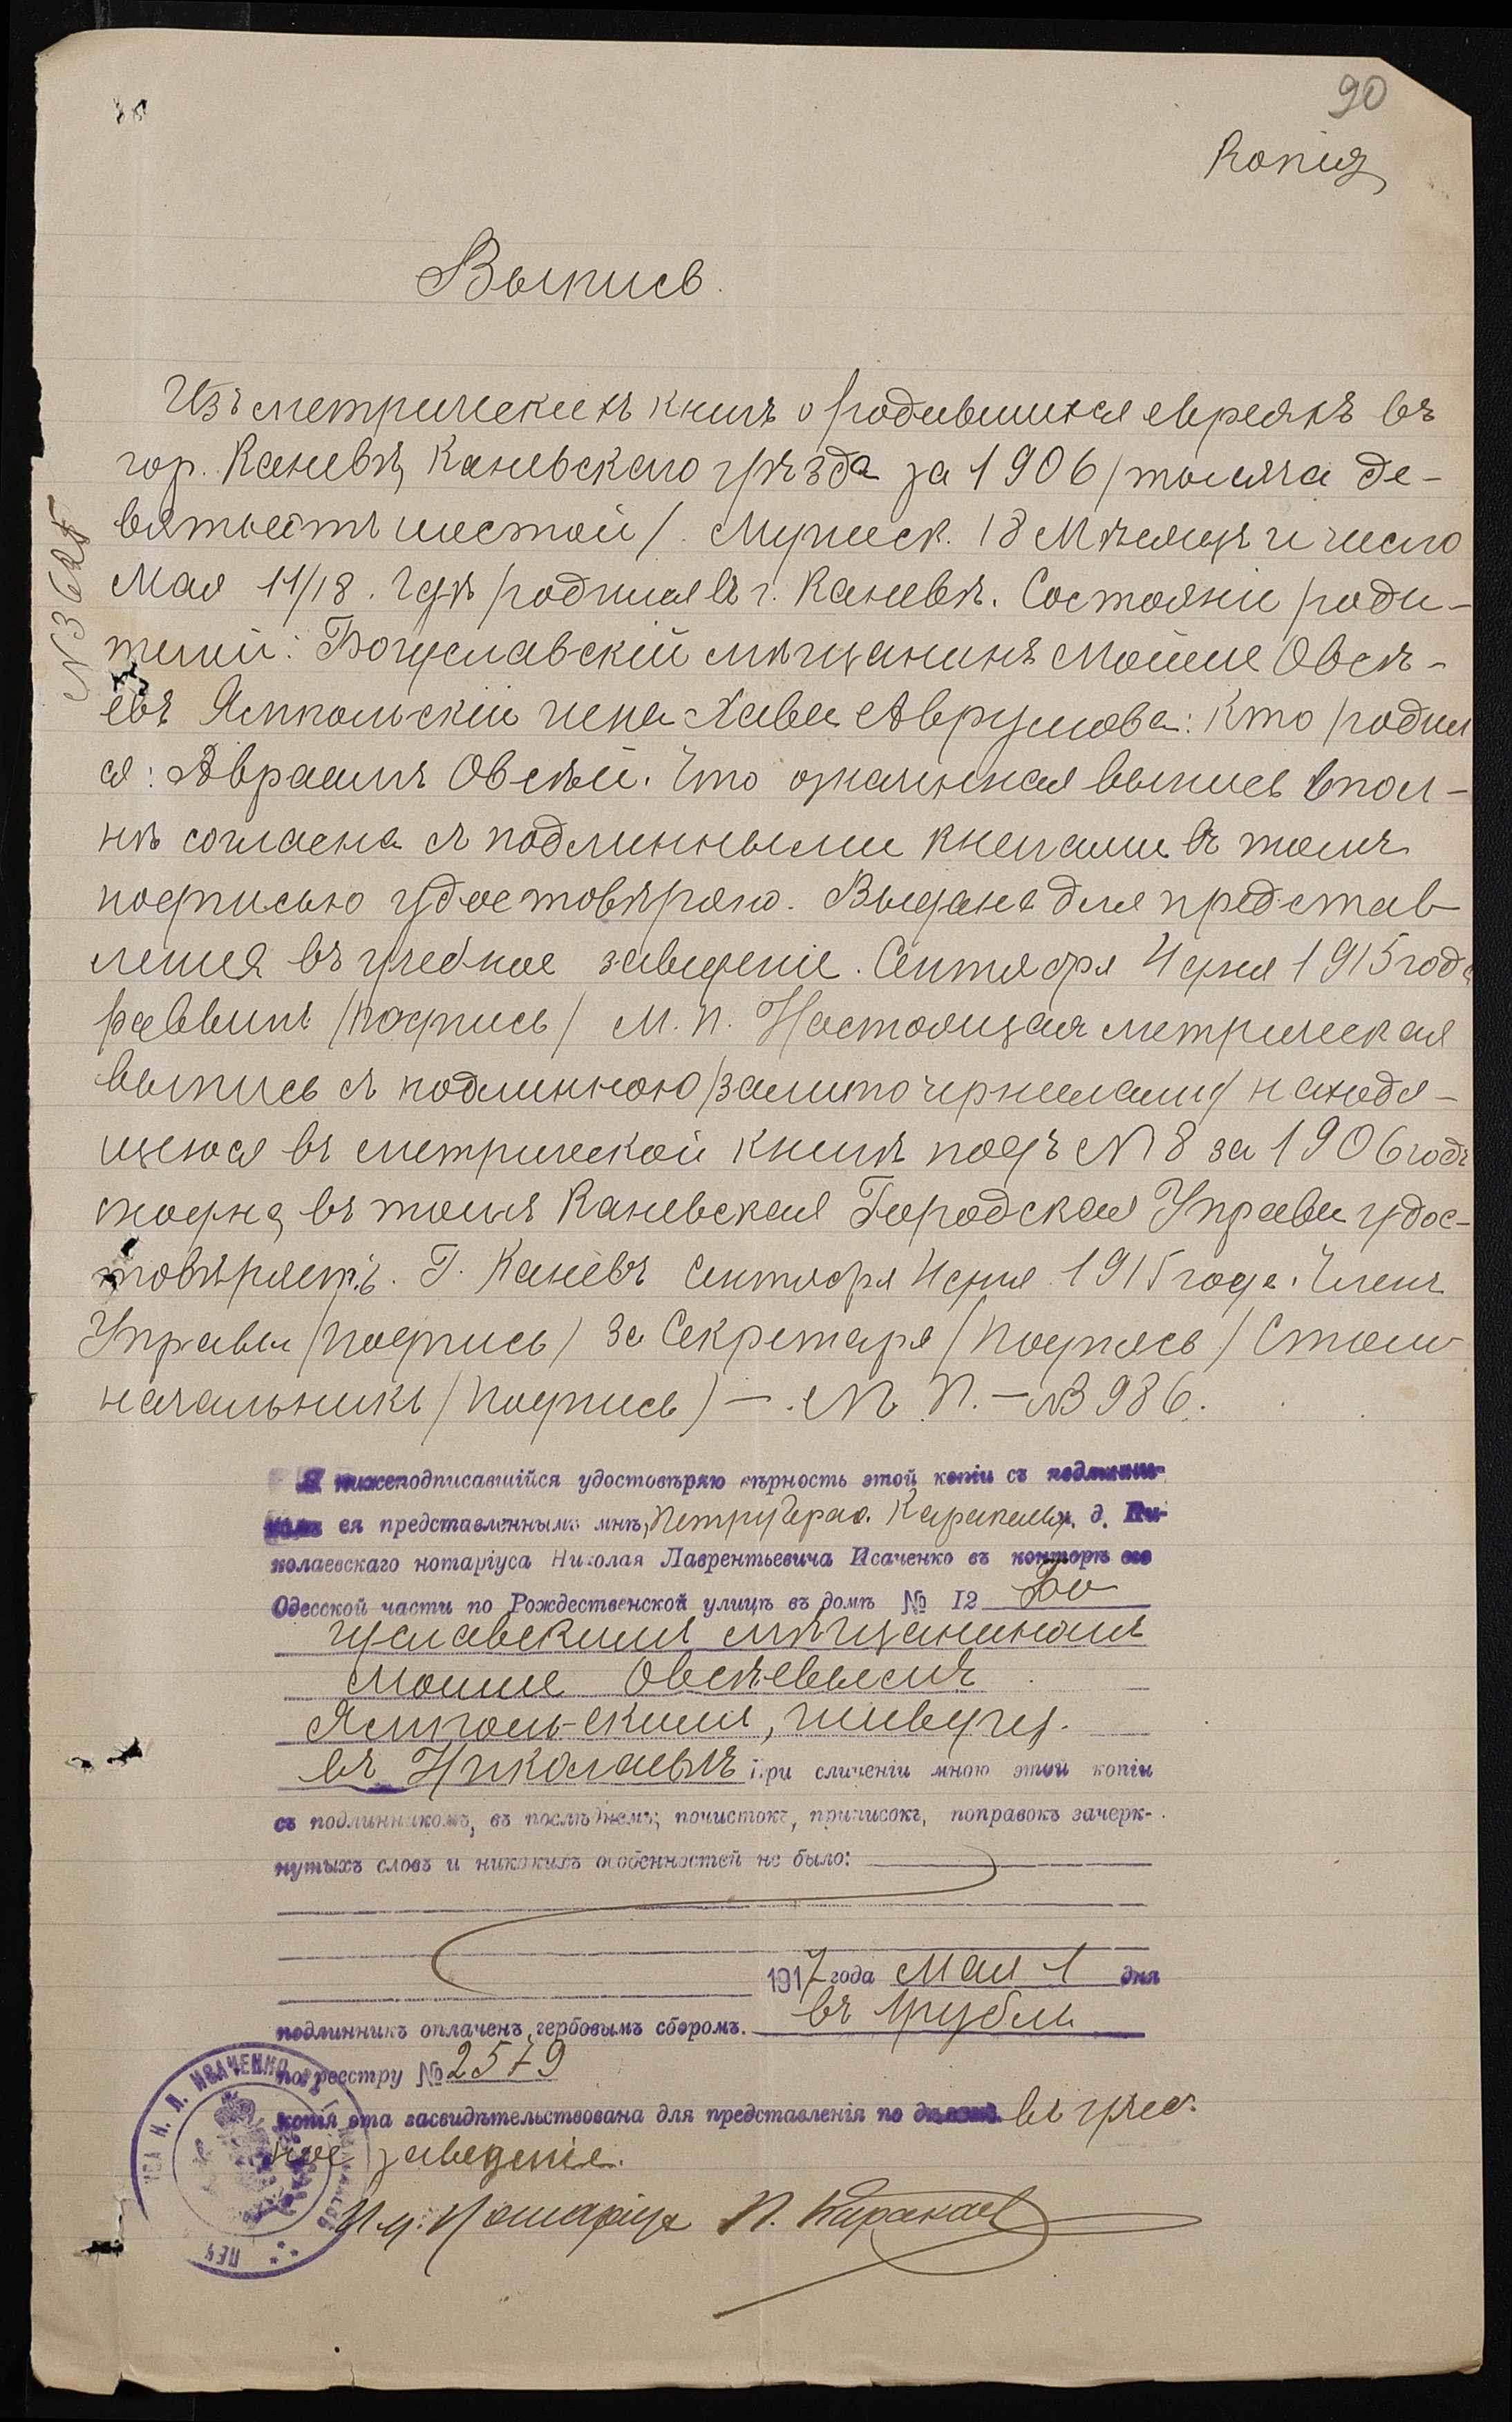 90
Копія
Выпись.
Изъ метрическихъ книгъ о родившихся евреяхъ въ
гор. Каневѣ, Каневскаго уѣзда за 1906 /тысяча де-
вятьсотъ шестой/. Мужеск. 18 Мѣсяцъ и число
Мая 11/18. Гдѣ родился въ г. Каневѣ. Состояніе роди-
телей: Богуславскій мѣщанинъ Мойше Овсѣ-
евъ Ямпольскій жена Хава Аврумова: Кто родил
ся: Авраамъ Овсѣй. Что означенная выпись впол-
нѣ согласна съ подлинными книгами въ томъ
подписью удостовѣряю. Выдана для представ
ленія въ учебное заведеніе. Сентября 4 дня 1915 года
раввинъ /подпись/ М. П. Настоящая метрическая
выпись съ подлинною /залито чернилами/ находя-
щеюся въ метрической книгѣ подъ № 8 за 1906 годъ
сходна, въ томъ Каневская Городская Управа удос-
товѣряетъ. Г. Каневъ Сентября 4 дня 1915 года. Членъ
Управы /подпись/ За Секретаря /подпись/ Столо
начальникъ /подпись/ — М. П. — № 3986.
№ 3625
Я нижеподписавшійся удостовѣряю вѣрность этой копіи съ подлинни-
комъ ея представленнымъ мнѣ, Петру Герас. Каракашу, и. д. Ни-
колаевскаго нотаріуса Николая Лаврентьевича Исаченко въ конторѣ его
Одесской части по Рождественской улицѣ въ домѣ № 12 Бо
гуславскимъ мѣщаниномъ
Мойше Овсѣевымъ
Ямпольскимъ, живущ.
въ Николаевѣ При сличеніи мною этой копіи
съ подлинникомъ, въ послѣднемъ; почистокъ, приписокъ, поправокъ зачерк-
нутыхъ словъ и никакихъ особенностей не было:
1917 года Мая 1 дня
подлинникъ оплаченъ гербовымъ сборомъ. въ рубль
по реестру № 2579
копія эта засвидѣтельствована для представленія въ учеб
ное заведеніе.
И. д. Нотаріуса П. Каракаш
Н. Л. ИСАЧЕНКО
ПЕЧ